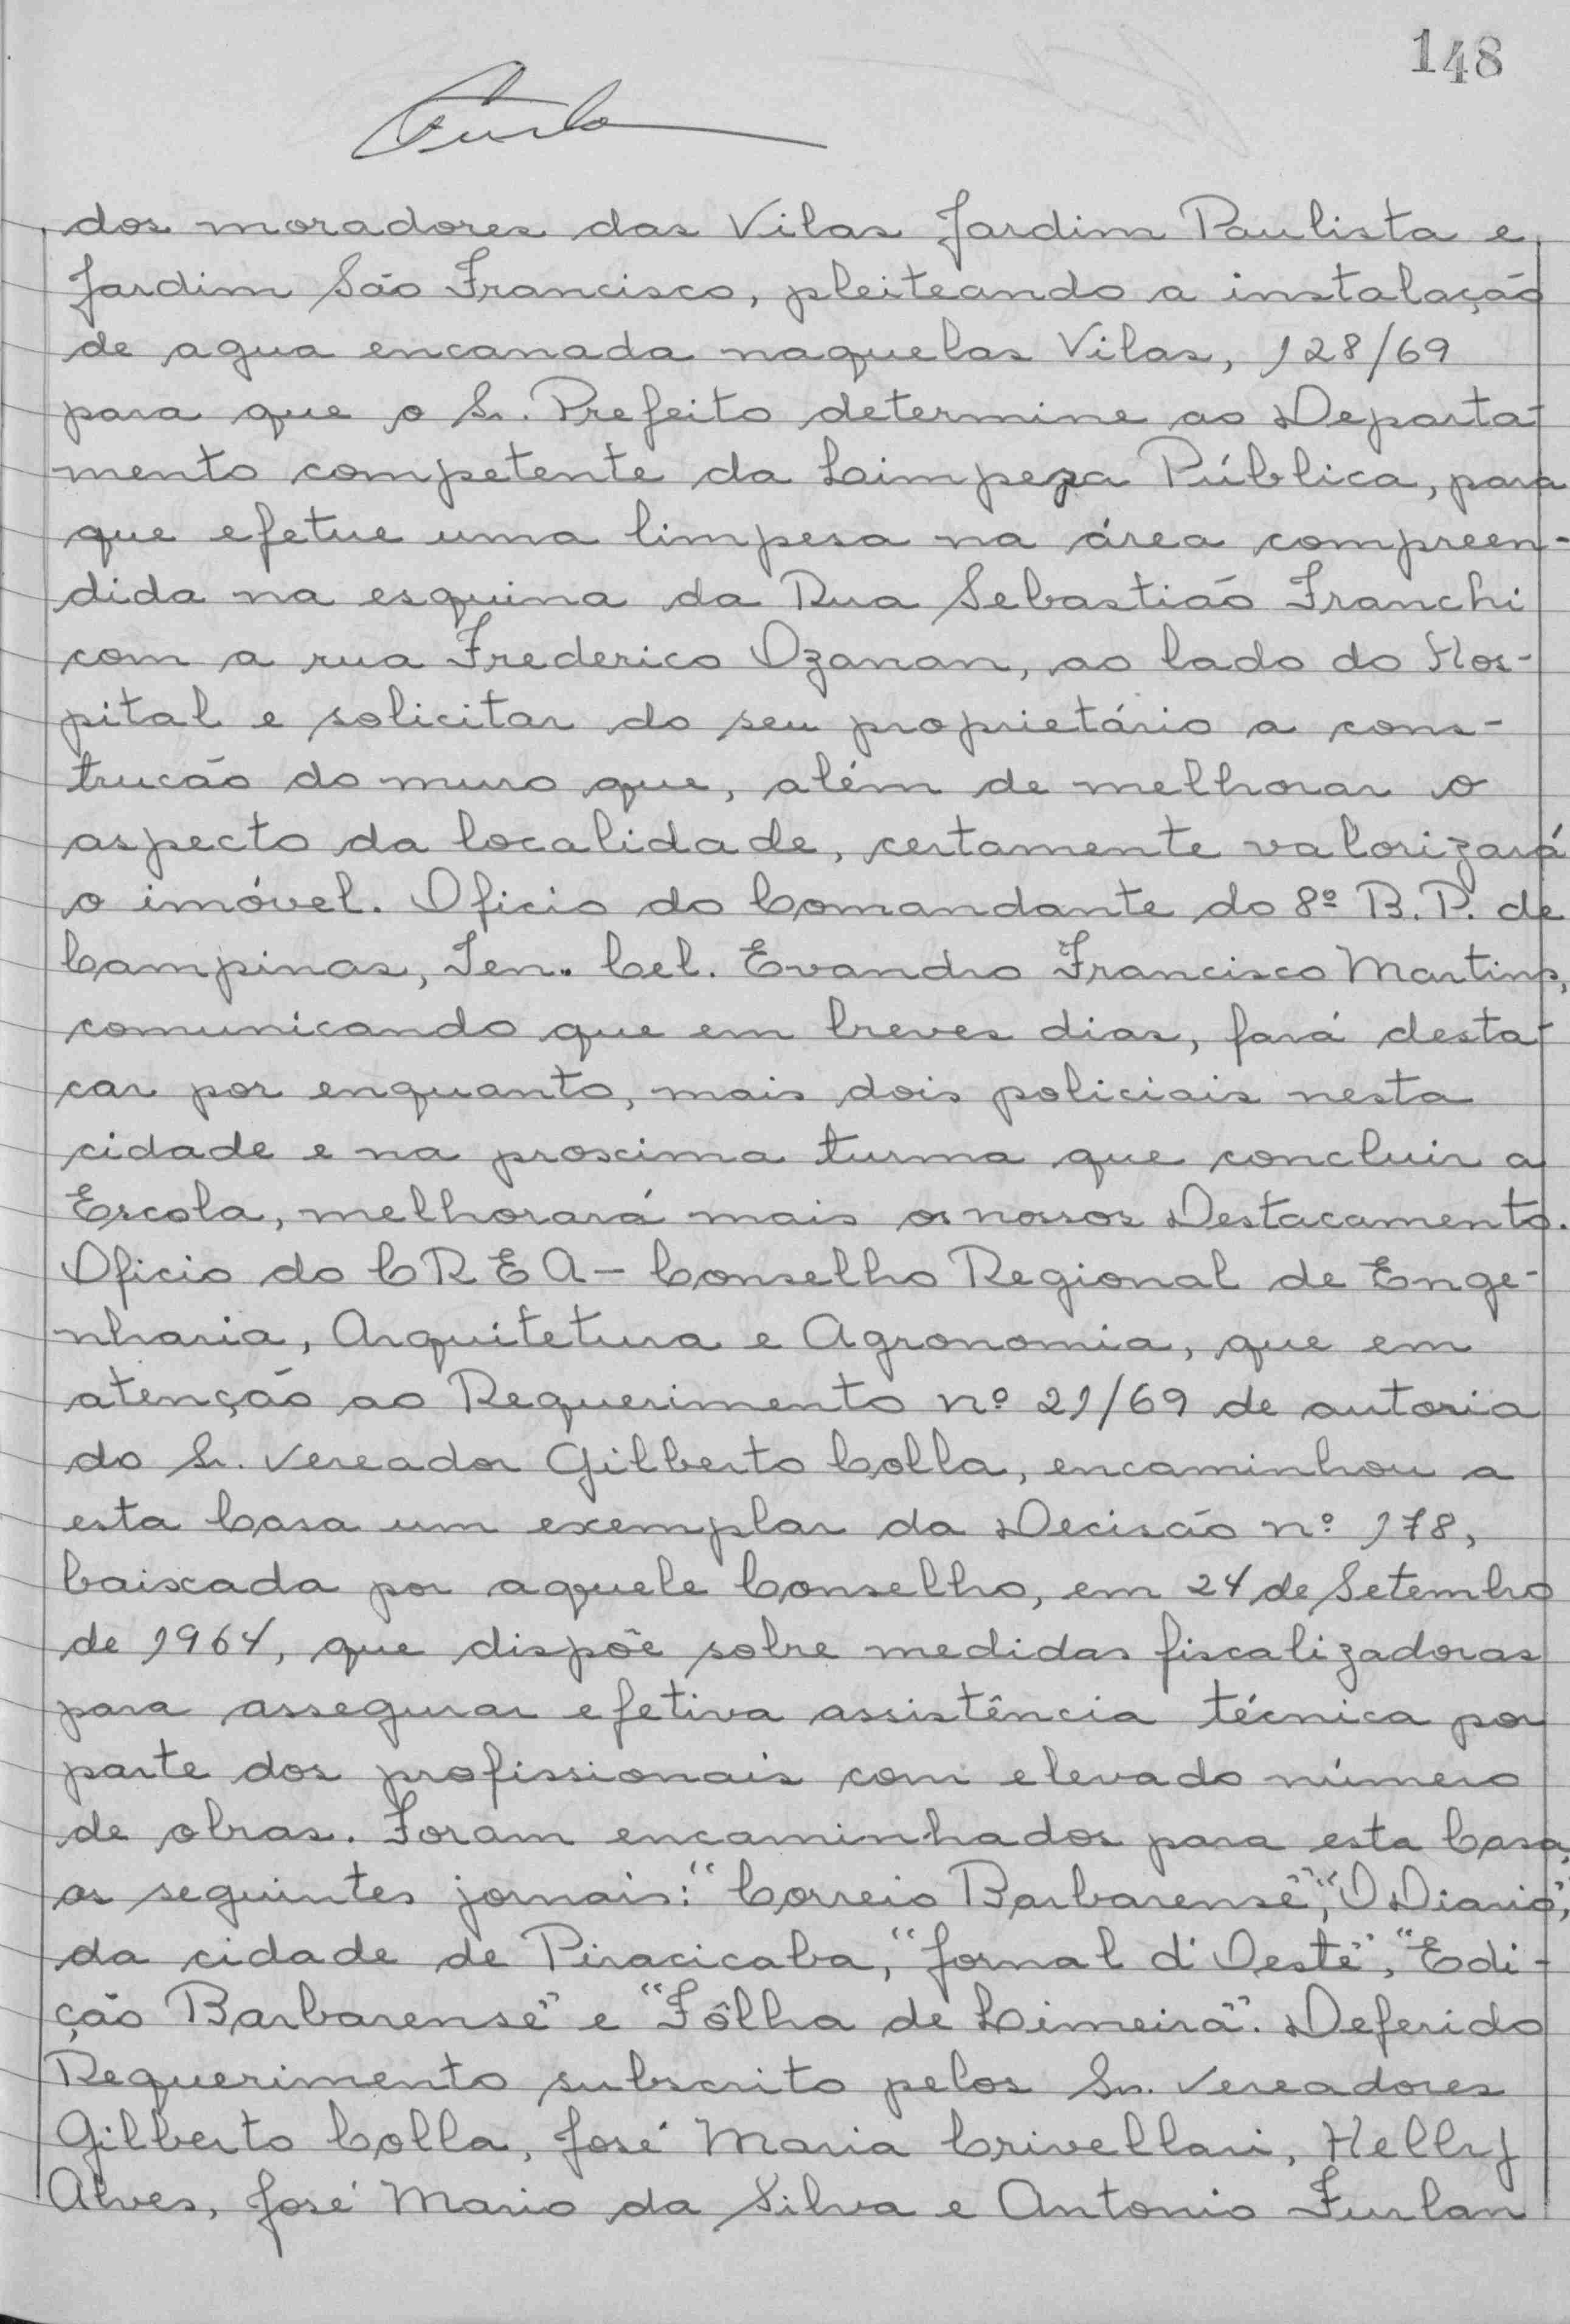 148
dos moradores das Vilas Jardim Paulista e
Jardim São Francisco, pleiteando a instalação
de agua encanada naquelas Vilas, 128/69
para que o Sr. Prefeito determine ao Departa-
mento competente da Limpeza Pública, para
que efetue uma limpesa na área compreen-
dida na esquina da Rua Sebastião Franchi
com a rua Frederico Ozanan, ao lado do Hos-
pital e solicitar do seu proprietário a cons-
trucão do muro que, além de melhorar o
aspecto da localidade, certamente valorizará
o imóvel. Oficio do Comandante do 8º B.P. de
Campinas, Ten. Cel. Evandro Francisco Martins,
comunicando que em breves dias, fará desta-
car por enquanto, mais dois policiais nesta
cidade e na proxima turma que concluir a
Escola, melhorará mais os nossos Destacamento.
Oficio do CREA - Conselho Regional de Enge-
nharia, Arquitetura e Agronomia, que em
atenção ao Requerimento nº 21/69 de autoria
do Sr. Vereador Gilberto Colla, encaminhou a
esta Casa um exemplar da Decisão nº 178,
baixada por aquele Conselho, em 24 de Setembro
de 1964, que dispõe sobre medidas fiscalizadoras
para assegurar efetiva assistência técnica por
parte dos profissionais com elevado número
de obras. Foram encaminhados para esta Casa,
os seguintes jornais: "Correio Barbarense", "O Diario",
da cidade de Piracicaba, "Jornal d'Oeste", "Edi-
ção Barbarense" e "Fôlha de Limeira". Deferido
Requerimento subscrito pelos Srs. Vereadores
Gilberto Colla, José Maria Crivellari, Helly J
Alves, José Mario da Silva e Antonio Furlan